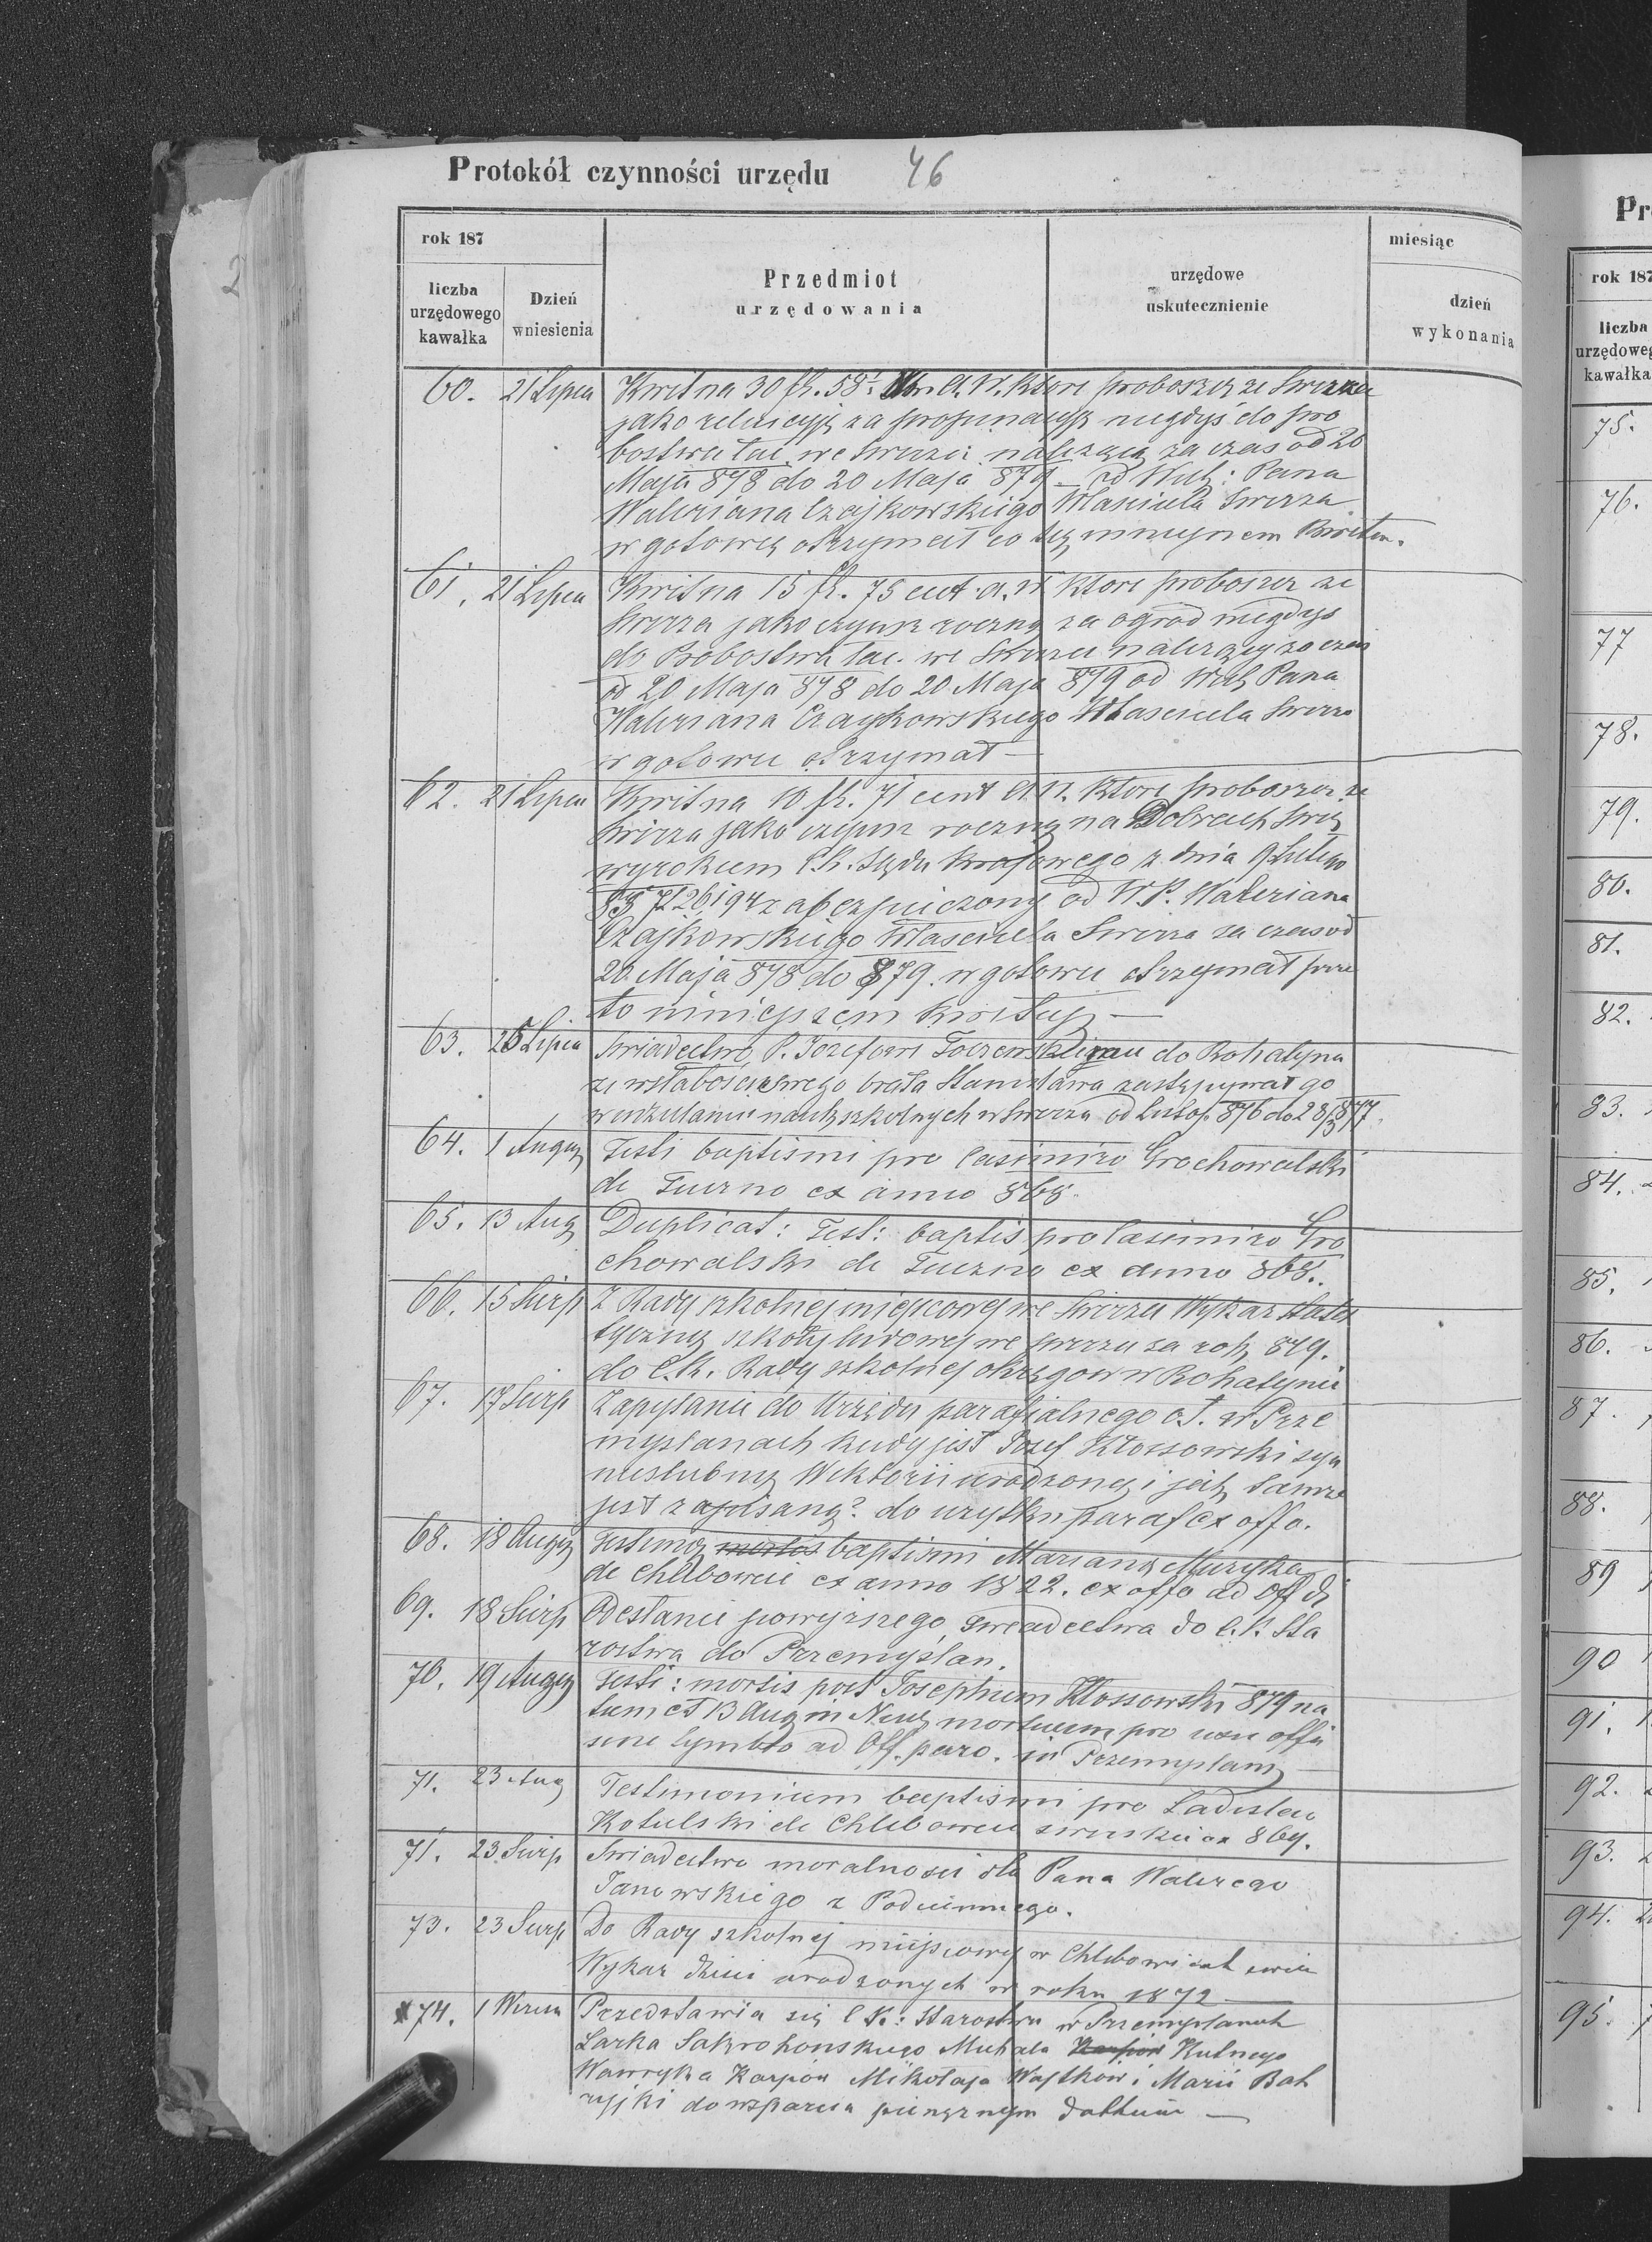 Protokół czynności urzędu 46
rok 187
miesiąc
liczba urzędowego kawałka
Dzień wniesienia
Przedmiot urzędowania
urzędowe uskutecznienie
dzień wykonania
60. 21 Lipca Kwit na 30 fl. 58 A. W. które proboszcz ze Swirza
jako za propinacyę niegdyś do pro
bostwa łac. we Swirzu należącą za czas od 20
Maja 878 do 20 Maja 879 od Wielż: Pana
Waleriana Czajkowskiego Właściciela Swirza
w gotowce otrzymał co kwituje.
61. 21 Lipca Kwit na 15 fl. 75 cent. a. w które proboszcz ze
Swirza jako czynsz roczny za ogród niegdys
do Probostwa łac. we Swirzu należący za czas
od 20 Maja 878 do 20 Maja 879 od Wielż Pana
Waleriana Czaykowskiego Właściciela Swirza
w gotowce otrzymał —
62. 21 Lipca Kwit na 10 fl. 71 cent A. W. które proboszcz ze
Swirza jako czynsz roczny na Dobrach Swirz
wyrokiem C. K. Sądu Krajowego z dnia 9 Lutego
zabezpieczony od W. P. Waleriana
Czajkowskiego Właściciela Swirza za czas od
20 Maja 878 do 879. w gotowce otrzymał prze
to niniejszem kwituję —
63. 25 Lipca Swiadectwo P. Józefowi do Rohatyna
ze w słabości swego brata Stanisława zastępywał go
w udzielaniu nauk szkolnych w Swirzu od Listop. 876 do 877.
64. 1 Aug Testi baptismi pro Casimiro Grochowalski
de Tuczno ex anno 868.
65. 13 Aug Duplicat: Test: baptis pro Casimiro Gro
chowalski de Tuczno ex anno 868.
66. 15 Sierp Z Rady szkolnej miejscowej we Swirzu Wykaz statys
tyczny szkoły ludowej we Swirzu za rok 879.
do C. K. Rady szkolnej okręgow w Rohatynie
67. 17 Sierp Zapytanie do Urzędu parafialnego o. ł. w Prze
myslanach kiedy jest Józef Kłossowski syn
nieslubny Wiktorii urodzony i jak tamże
jest zapisany? do użytku paraf ex offo.
68. 18 Aug Testimo mortis baptismi Marianna Muzyka
de Chlebowce ex anno 1822. ex offo ad Off
69. 18 Sierp Odesłanie powyższego swiadectwa do C. K. Sta
rostwa do Przemyślan.
70. 19 Aug Testi: mortis post Josephum Kłossowski 879 na
tum et 13 Aug in mortuum pro usu offi
sine ad Off. paro. in Przemyslany —
71. 23 Aug Testimonium baptismi pro Ladislao
Kotulski de Chlebowce ex 869.
71. 23 Sierp Swiadectwo moralności dla Pana Walerego
Janowskiego z
73. 23 Sierp Do Rady szkolnej miejscowej w Chlebowicach
Wykaz dzieci urodzonych w roku 1872 —
74. 1 Wrzes Przedstawia się C. K.: Starostwu w Przemyslanach
Michała Karpów Kulnego
Wawryka Karpów Mikołaja Wajtków i Marii
do wsparcia pieniężnym datkiem —
Pr
rok 187
liczba urzędoweg kawałka
75.
76.
77
78.
79.
80.
81.
82.
83.
84.
85.
86.
87.
88.
89
90
91.
92.
93.
94.
95.